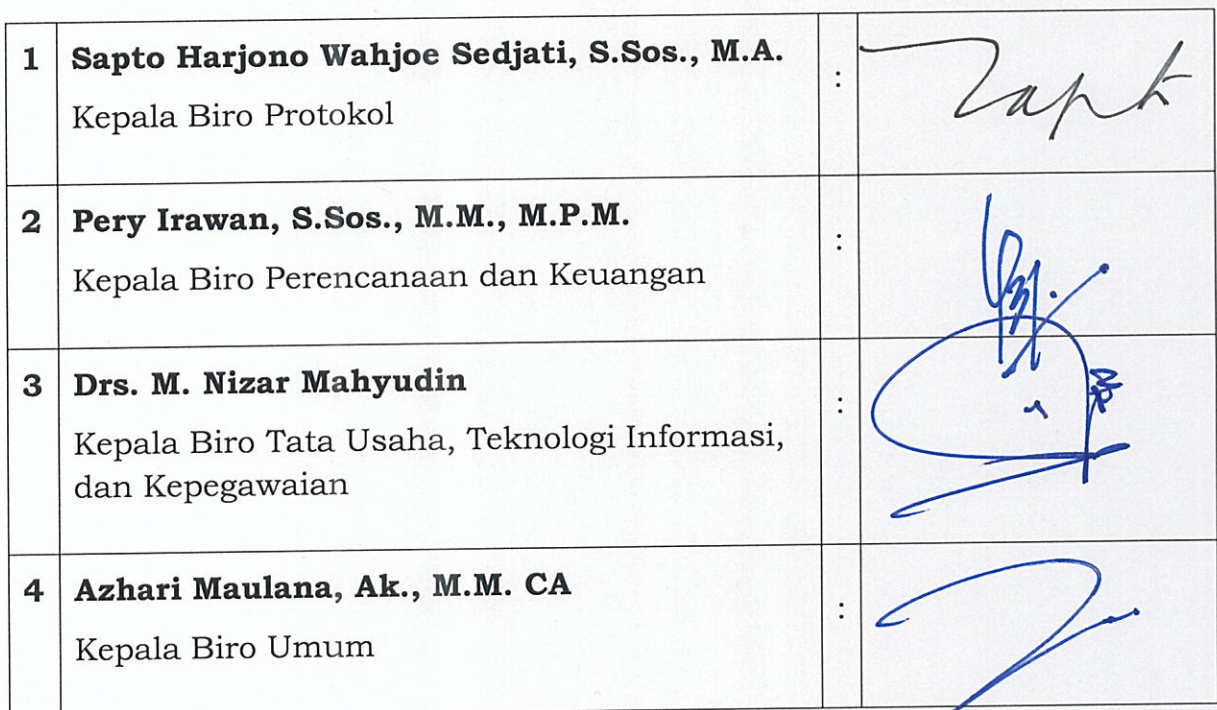 1 Sapto Harjono Wahjoe Sedjati, S.Sos., M.A. :
Kepala Biro Protokol
2 Pery Irawan, S.Sos., M.M., M.P.M. :
Kepala Biro Perencanaan dan Keuangan
3 Drs. M. Nizar Mahyudin :
Kepala Biro Tata Usaha, Teknologi Informasi,
dan Kepegawaian
4 Azhari Maulana, Ak., M.M. CA :
Kepala Biro Umum